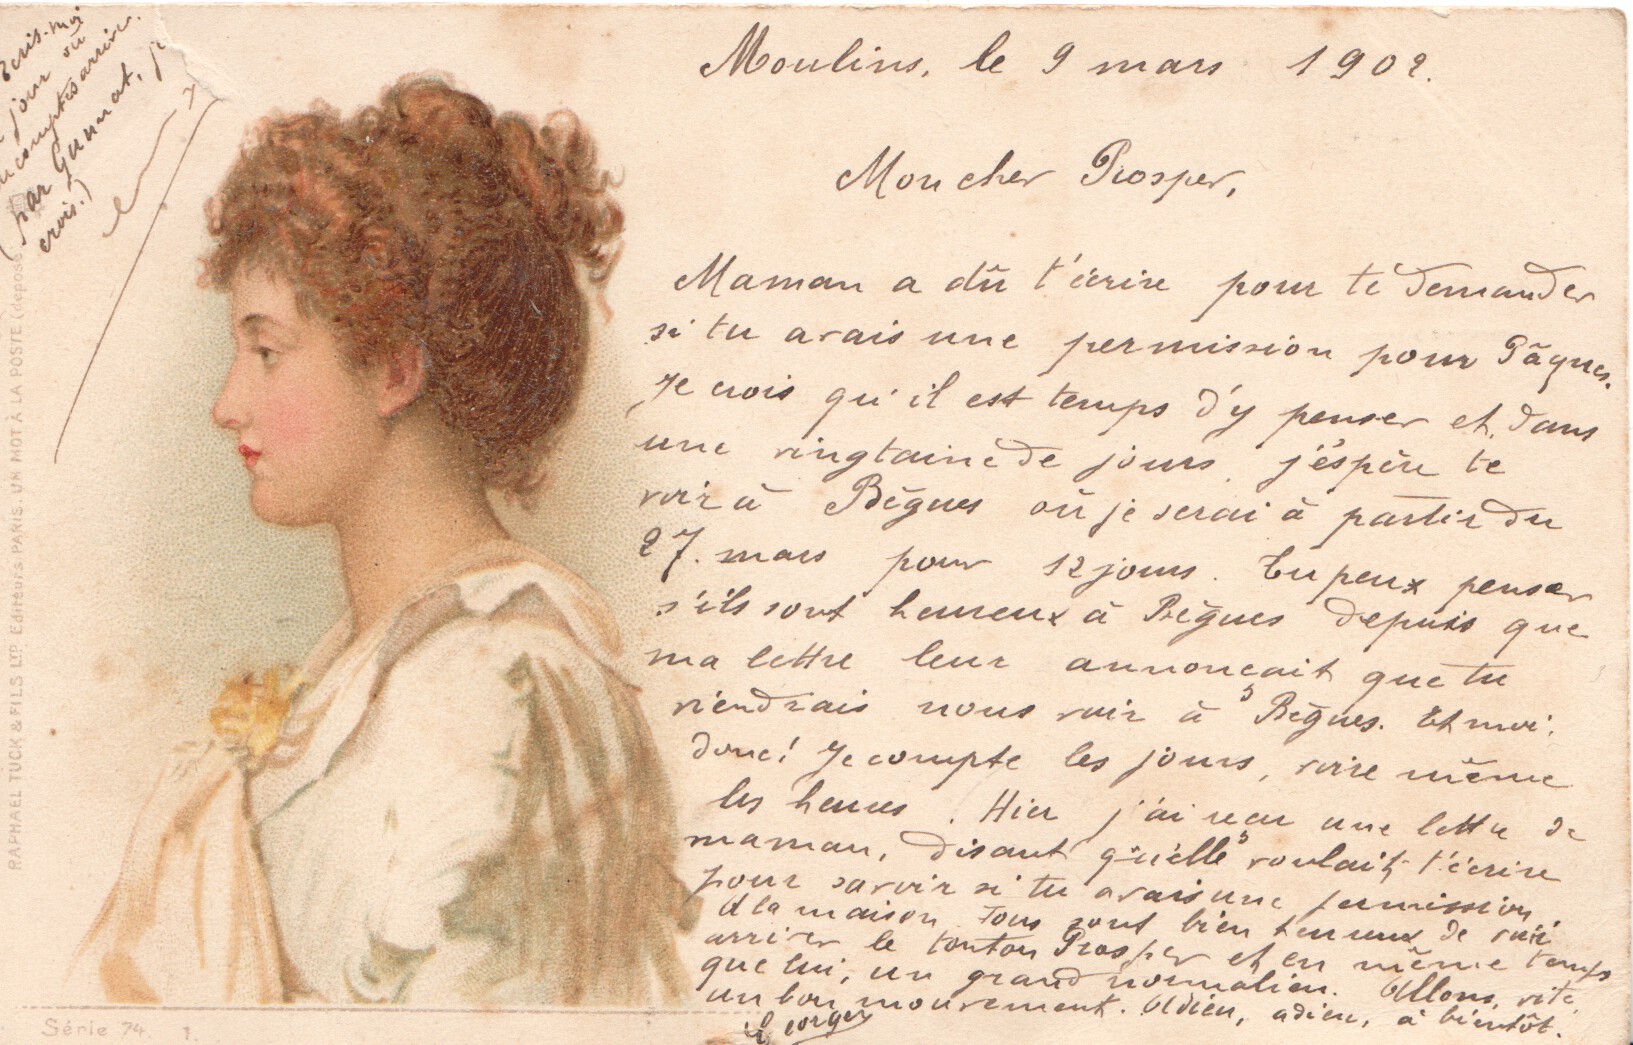 Moulins, le 9 mars 1902.
Mon cher Prosper,
Maman a dû t'écrire pour te demander
si tu avais une permission pour Pâques.
Je crois qu'il est temps d'y penser et, dans
une vingtaine de jours j'espère te
voir à Bègues où je serai à partir du
27. mars pour 12 jours. Tu peux penser
s'ils sont heureux à Bègues depuis que
ma lettre leur annonçait que tu
viendrais nous voir à Bègues. Et moi,
donc! Je compte les jours, voire même
les heures. Hier j'ai reçu une lettre de
maman, disant qu'elle voulait t'écrire
pour savoir si tu avais une permission.
A la maison Tous sont bien heureux de voir
arriver le tonton Prosper et en même temps
que lui, un grand normalien. Allons, vite
un bon mouvement. Adieu, adieu, à bientôt.
Georges
Ecris-moi
jour où
comptes arriver.
(par Gannat, je
crois.)
RAPHAEL TUCK & FILS LTD EDITEURS PARIS. UN MOT À LA POSTE (déposé
Série 74. 1.